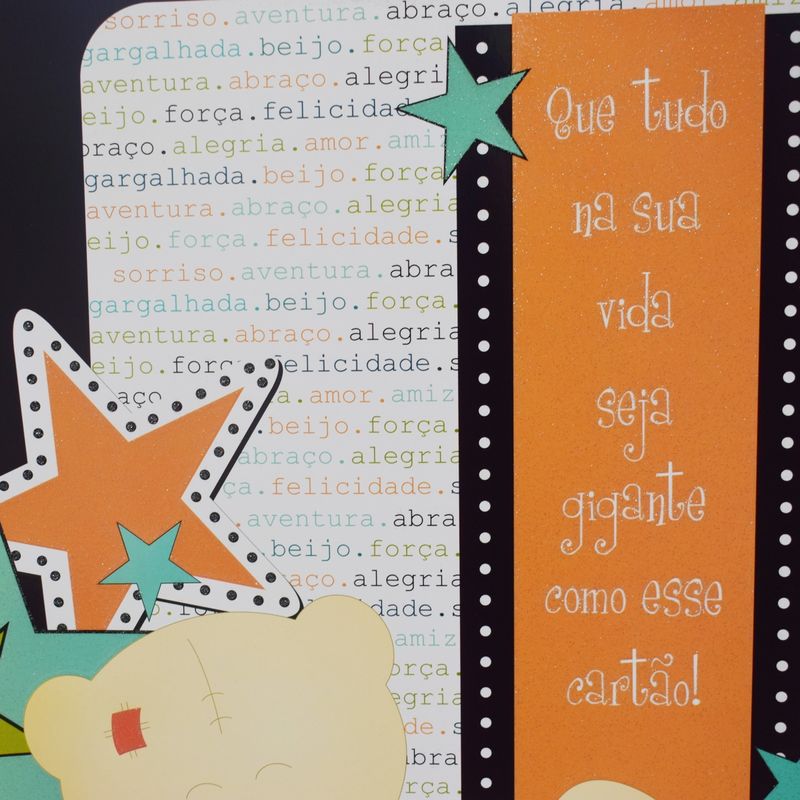 sorriso.aventura.abraço.alegria.amor.amiz
gargalhada.beijo.força
aventura.abraço.alegri
eijo.força.felicidad
braço.alegria.amor.ami
gargalhada.beijo.força.
aventura.abraço.alegria
eijo.força.felicidade.s
sorriso.aventura.abra
gargalhada.beijo.força.
aventura.abraço.alegria
eijo.força.felicidade.s
aço a.amor.amiz
.beijo.força.
abraço.alegria
ça.felicidade.s
.aventura.abra
.beijo.força.
aço.alegria
força.felicidade.s
amiz
orça.
egria
de.s
abra
orça.
Que tudo
na sua
vida
seja
gigante
como esse
cartão!